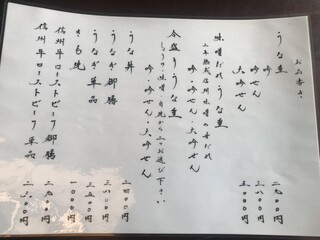 お品書き
うな重
吟
吟せん
大吟せん
二九〇〇円
三八〇〇円
五〇〇〇円
味噌だれ うな重
二年熟成信州味噌の甘だれ
吟・吟せん・大吟せん
合盛りうな重
しょうゆ・味噌・白焼から二つお選び下さい
吟・吟せん・大吟せん
うな丼
二四〇〇円
うなぎ御膳
三八〇〇円
うなぎ単品
きも焼
一〇〇〇円
信州牛ローストビーフ御膳
信州牛ローストビーフ 単品